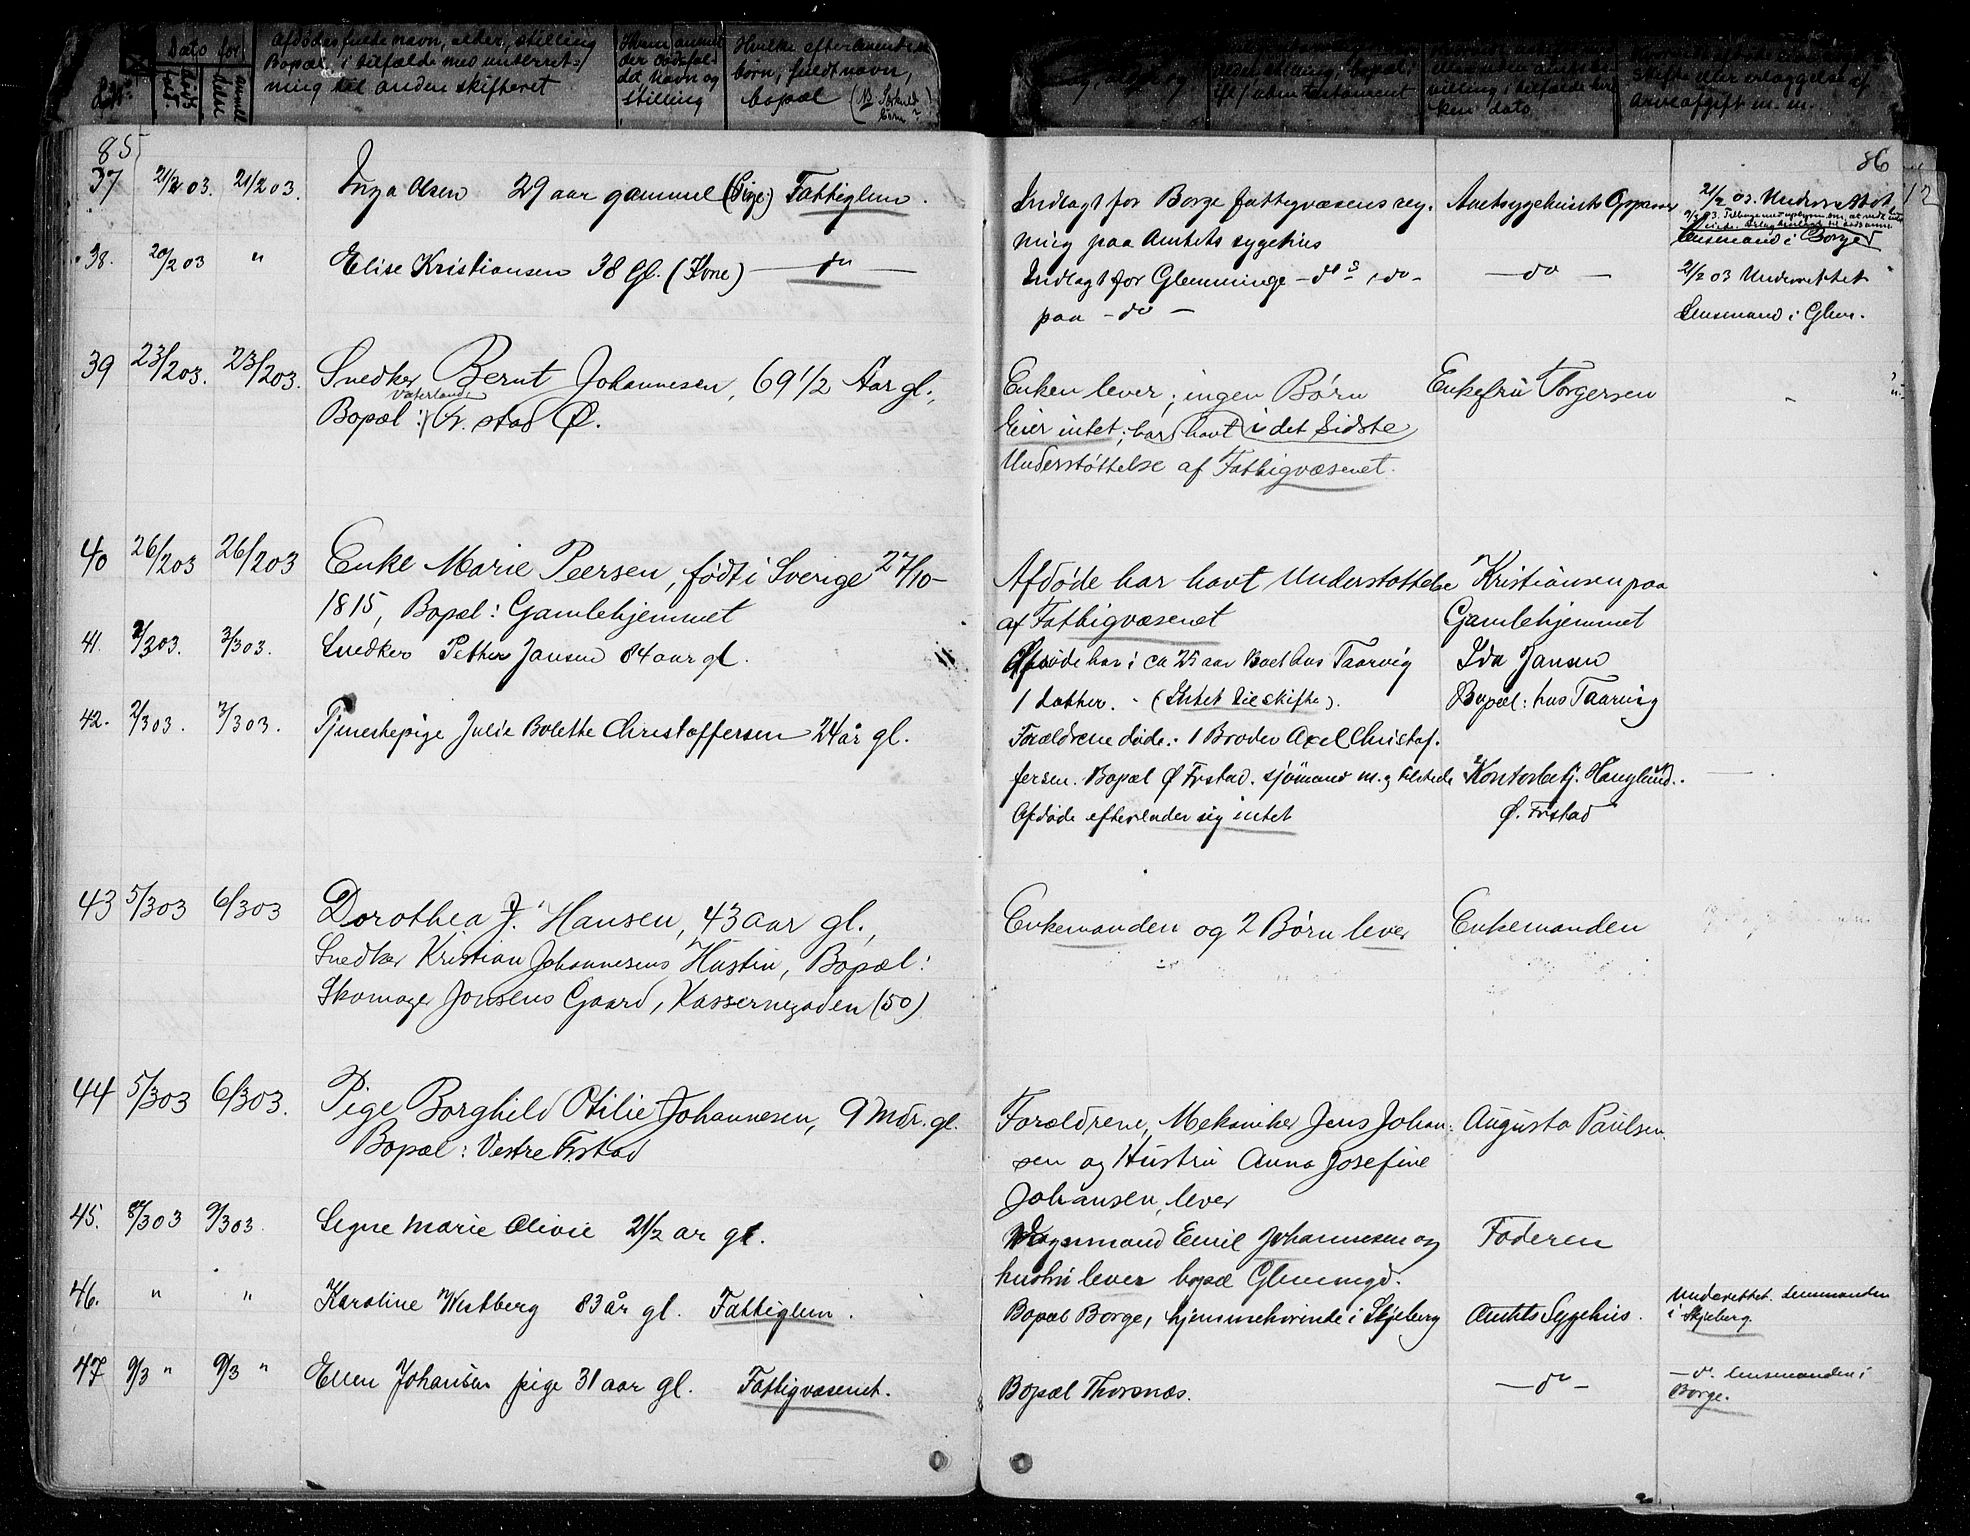 Dato for
Afdødes fulde navn, alder, stilling
Bopæl i tilfælde med underret-
ning til anden skifteret
Hvem anmel-
der dødsfal-
det Navn og
stilling
Hvilke efterlevende
børn, fuldt navn,
bopæl
skifte eller erlæggelse af
arveafgift m. m.
85
37 21/2 03. 21/2 03. Inga Olsen 29 aar gammel (Pige) Fattiglem.
38. 20/2 03 " Elise Kristiansen 38 Gl. (Kone) — do —
39 23/2 03. 23/2 03. Snedker Bernt Johannesen, 69 1/2 Aar gl.,
Vaterland
Bopæl: Fr. stad Ø.
40 26/2 03 26/2 03 Enke Marie Peersen, født i Sverige 27/10-
1815, Bopæl: Gamlehjemmet
41. 2/3 03. 3/3 03. Snedker Petter Jansen 84 aar gl.
42. 2/3 03. 3/3 03. Tjenestepige Julie Bolette Christoffersen 24 år gl.
43 5/3 03 6/3 03 Dorothea J. Hansen, 43 aar gl.,
Snedker Kristian Johannesens Hustru, Bopæl:
Skomager Jonsens Gaard, Kassernegaden (50)
44 5/3 03 6/3 03. Pige Borghild Otilie Johannesen, 9 Mdr. gl.
Bopæl: Vestre Frstad
45. 8/3 03 9/3 03. Signe Marie Olivie 2 1/2 ar gl.
46. " " Karoline Westberg 83 år gl. Fattiglem.
47 9/3 " 9/3 " Ellen Johansen pige 31 aar gl. Fattigvæsenet.
86
Indlagt for Borge fattigvæsens reg-
ning paa Amtets sygehus
Amtsygehusets
21/2 03. Underrettet
Lensmand i Borge
Indlagt for Glemminge — do s — do —
paa — do —
— do —
21/2 03 Underrettet
Lensmand i Glem.
Enken lever; ingen Børn
Eier intet; har havt i det Sidste
Understøttelse af Fattigvæsenet.
Enkefru Torgersen
Afdøde har havt Understøttelse
af Fattigvæsenet
Kristiansen paa
Gamlehjemmet
Afdøde har i ca 25 aar Boet hos Taarvig
1 datter. - (Intet til skifte).
Ida Jansen
Bopæl: hos Taarvig
Forældrene døde. 1 Broder Axel Christof-
fersen. Bopæl Ø Frstad. sjømand m. g tilstede
Afdøde efterlader sig intet
Kontorbetj. Hauglund.
Ø. Frstad
Enkemanden og 2 Børn lever
Enkemanden
Forældrene, Mekaniker Jens Johan-
sen og Hustru Anna Josefine
Johansen, lever
Augusta Paulsen
Vognmand Emil Johannesen og
hustru lever bopæl Glemmingd.
Faderen
Bopæl Borge, hjemmehørende i Skjeberg
Amtets Sygehus.
Underrettet. Lensmanden
i Skjeberg.
Bopæl Thorsnæs.
— do —
— do. Lensmanden i
Borge.